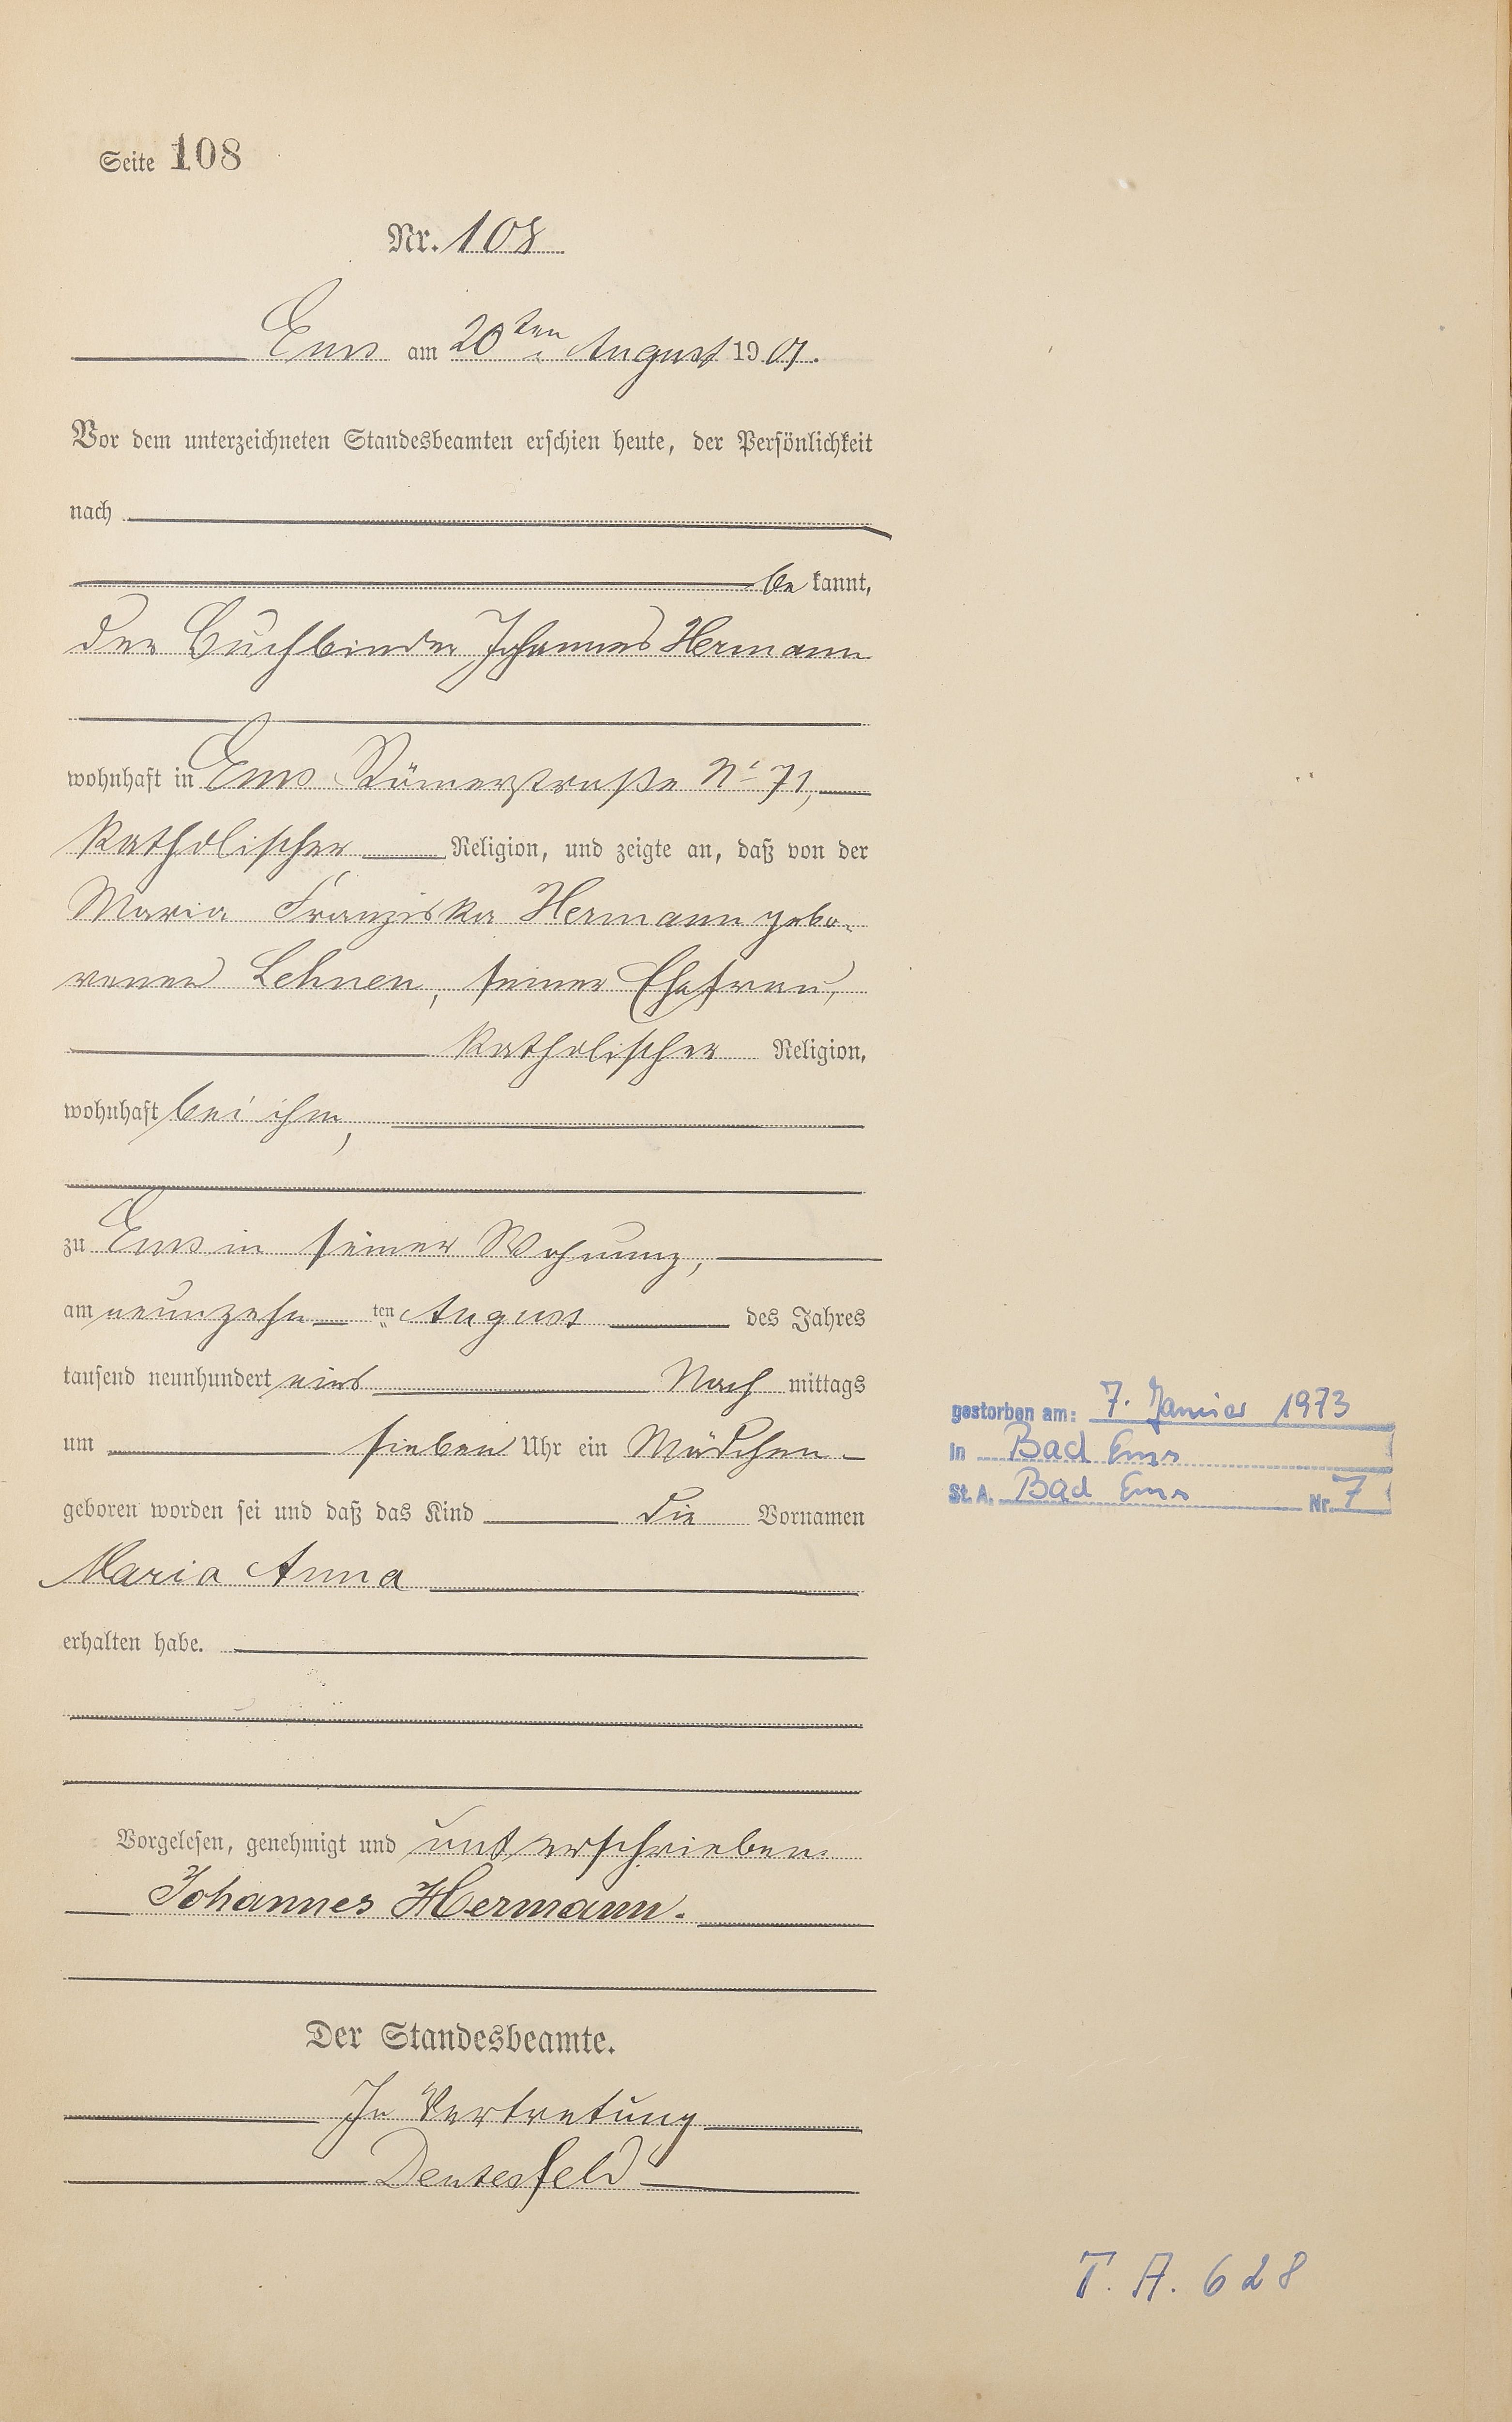 Seite 108
Nr. 108
Ems am 20ten August 1901.
Vor dem unterzeichneten Standesbeamten erschien heute, der Persönlichkeit
nach
be kannt,
der Buchbinder Johannes Hermann
wohnhaft in Ems Römerstraße No 71,
katholischer Religion, und zeigte an, daß von der
Maria Franziska Hermann gebo-
renen Lehnen, seiner Ehefrau,
katholischer Religion,
wohnhaft bei ihm,
zu Ems in seiner Wohnung,
am neunzehn ten August des Jahres
tausend neunhundert eins Nach mittags
um sieben Uhr ein Mädchen
geboren worden sei und daß das Kind die Vornamen
Maria Anna
erhalten habe.
Vorgelesen, genehmigt und unterschrieben.
Johannes Hermann.
Der Standesbeamte.
In Vertretung
gestorben am: 7. Januar 1973
in Bad Ems
St. A. Bad Ems Nr. 7
T. A. 628